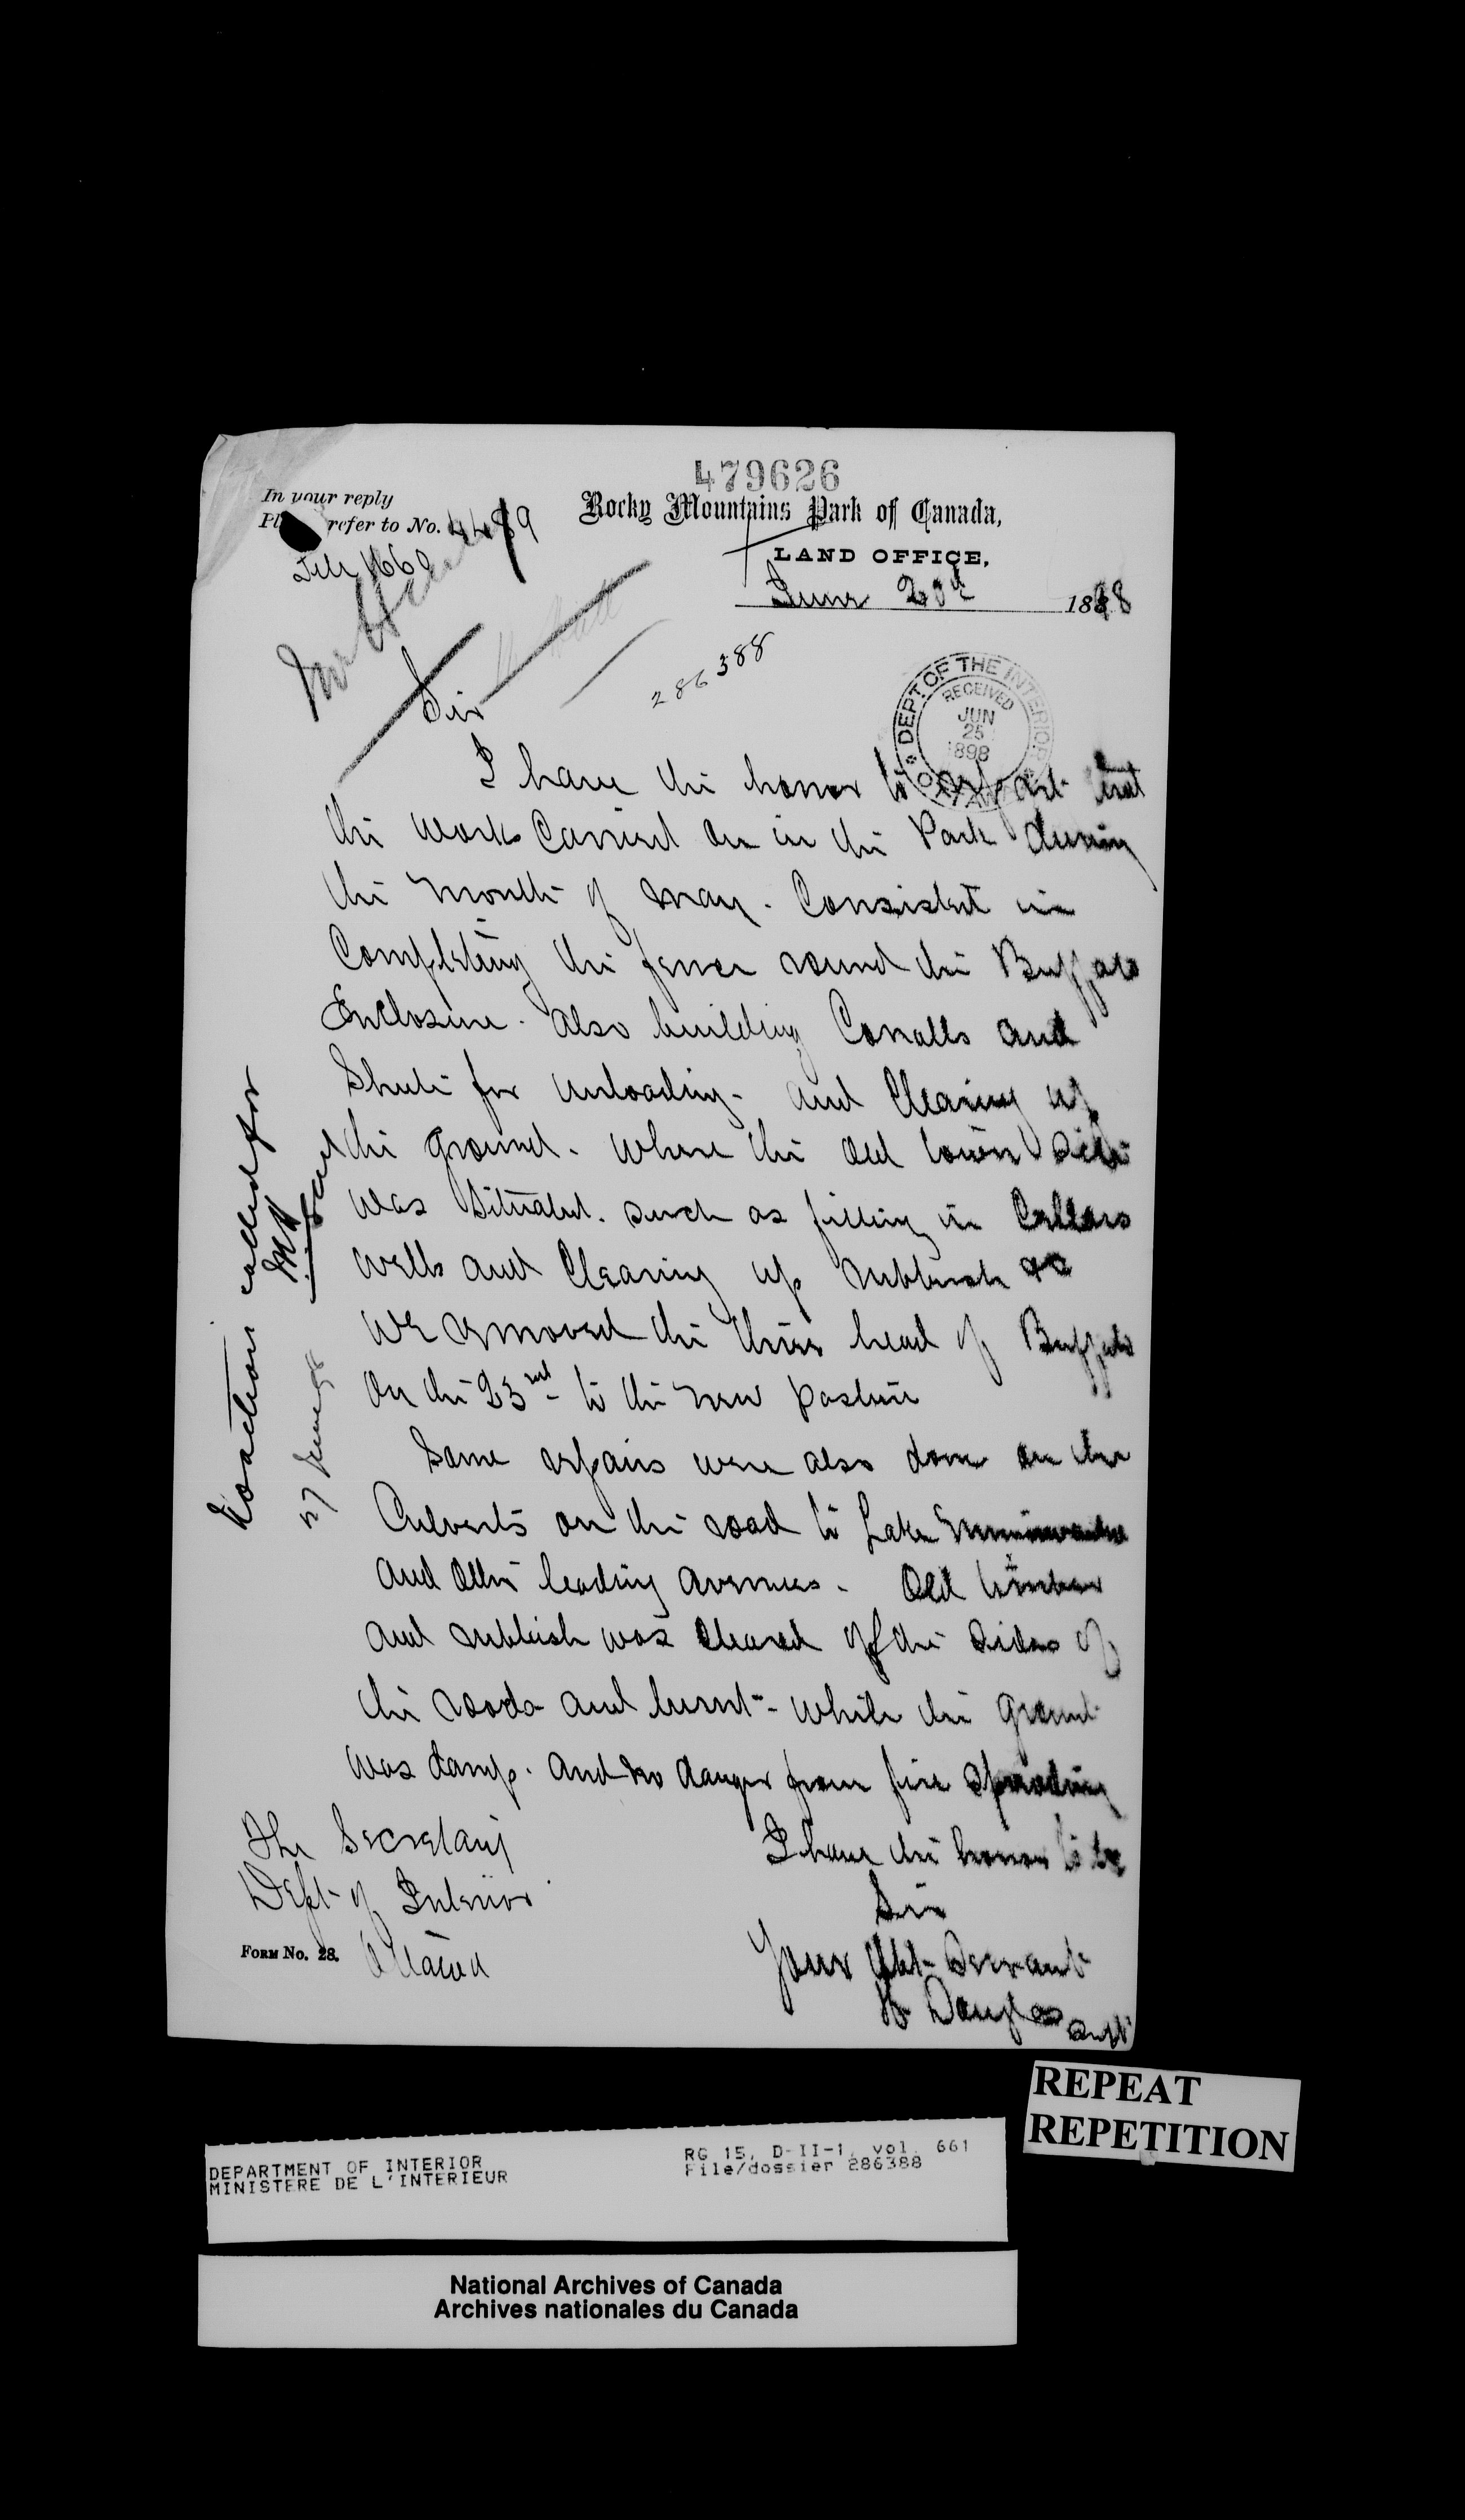 479626
In your reply
refer to No. 4489
Rocky Mountains Park of Canada,
LAND OFFICE,
June 20th 1898
286388
DEPT. OF THE INTERIOR
RECEIVED
JUN
25
1898
OTTAWA
Sir
I have the honor to report that
the work carried on in the Park during
the month of May. Consisted in
Completing the fence round the Buffalo
Enclosure. Also building Corralls and
Shute for unloading - and Clearing up
the ground. where the old town site
was situated. such as filling in Cellars
wells and Clearing up rubbish &c
We removed the three head of Buffalo
on the 23rd - to the new pasture
Some repairs were also done on the
Culverts on the road to Lake Minnewanka
and other leading avenues - Old timber
and rubbish was cleared off the sides of
the roads and burnt - while the ground
was damp. And no danger from fire spreading
I have the honor to be
Sir
Your Obt - Servant
Douglas Supt
The Secretary
Dept of Interior
Ottawa
FORM No. 28.
No action called for
27 June 98
REPEAT
REPETITION
DEPARTMENT OF INTERIOR
MINISTERE DE L'INTERIEUR
RG 15, D-II-1, vol. 661
File/dossier 286388
National Archives of Canada
Archives nationales du Canada